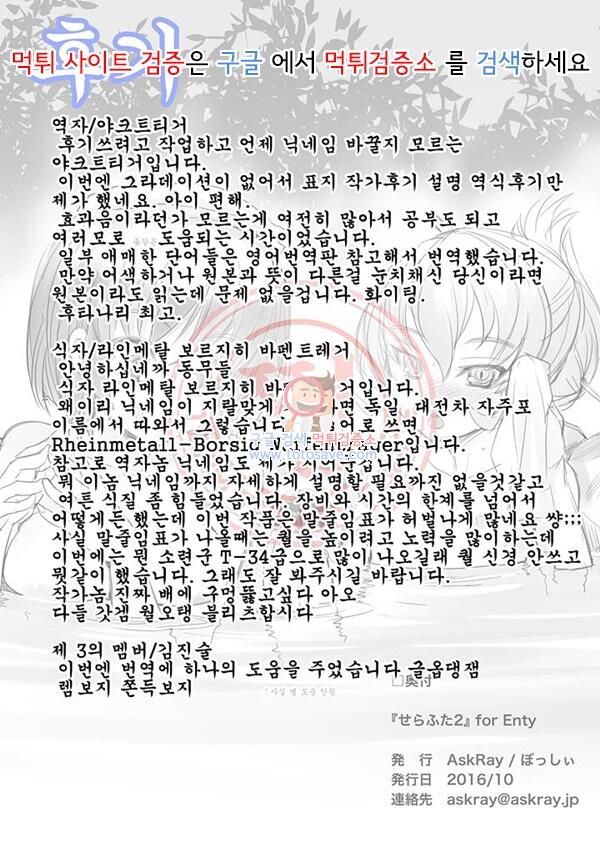 후기
먹튀 사이트 검증은 구글 에서 먹튀검증소 를 검색하세요
역자/야크트티거
후기쓰려고 작업하고 언제 닉네임 바꿀지 모르는
야크트티거입니다.
이번엔 그라데이션이 없어서 표지 작가후기 설명 역식후기만
제가 했네요. 아이 편해.
효과음이라던가 모르는게 여전히 많아서 공부도 되고
여러모로 도움되는 시간이었습니다.
일부 애매한 단어들은 영어번역판 참고해서 번역했습니다.
만약 어색하거나 원본과 뜻이 다른걸 눈치채신 당신이라면
원본이라도 읽는데 문제 없을겁니다. 화이팅.
후타나리 최고.
식자/라인메탈 보르지히 바펜트레거
안녕하십네까 동무들
식자 라인메탈 보르지히 바펜 거입니다.
왜이리 닉네임이 지랄맞게 면 독일 대전차 자주포
이름에서 따와서 그렇습니다 어로 쓰면
Rheinmetall-Borsig 입니다.
구글 검색 먹튀검증소
www.totosave.com
참고로 역자놈 닉네임도 제가
뭐 이놈 닉네임까지 자세하게 설명할 필요까진 없을것같고
여튼 식질 좀 힘들었습니다. 장비와 시간의 한계를 넘어서
어떻게든 했는데 이번 작품은 말줄임표가 허벌나게 많네요 썅;;;
사실 말줄임표가 나올때는 퀄을 높이려고 노력을 많이하는데
이번에는 뭔 소련군 T-34급으로 많이 나오길래 퀄 신경 안쓰고
뭣같이 했습니다. 그래도 잘 봐주시길 바랍니다.
작가놈 진짜 배에 구멍뚫고싶다 아오
다들 갓겜 월오탱 블리츠합시다
제 3의 멤버/김진술
이번엔 번역에 하나의 도움을 주었습니다 글옵댕잼
렘보지 쫀득보지
↑사실 별 도움 안됨
□奥付
『せらふた2』 for Enty
発 行 AskRay / ぼっしぃ
発行日 2016/10
連絡先 askray@askray.jp